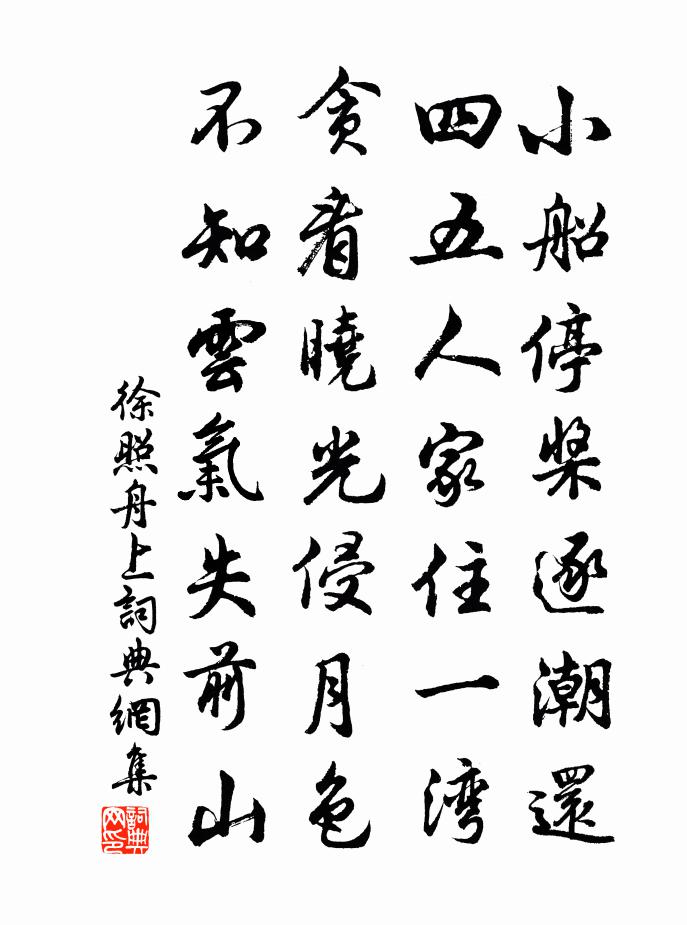 小船停槳逐潮還
四五人家住一湾
貪看曉光侵月色
不知雲氣失前山
徐照舟上詞典網集
詞典网印